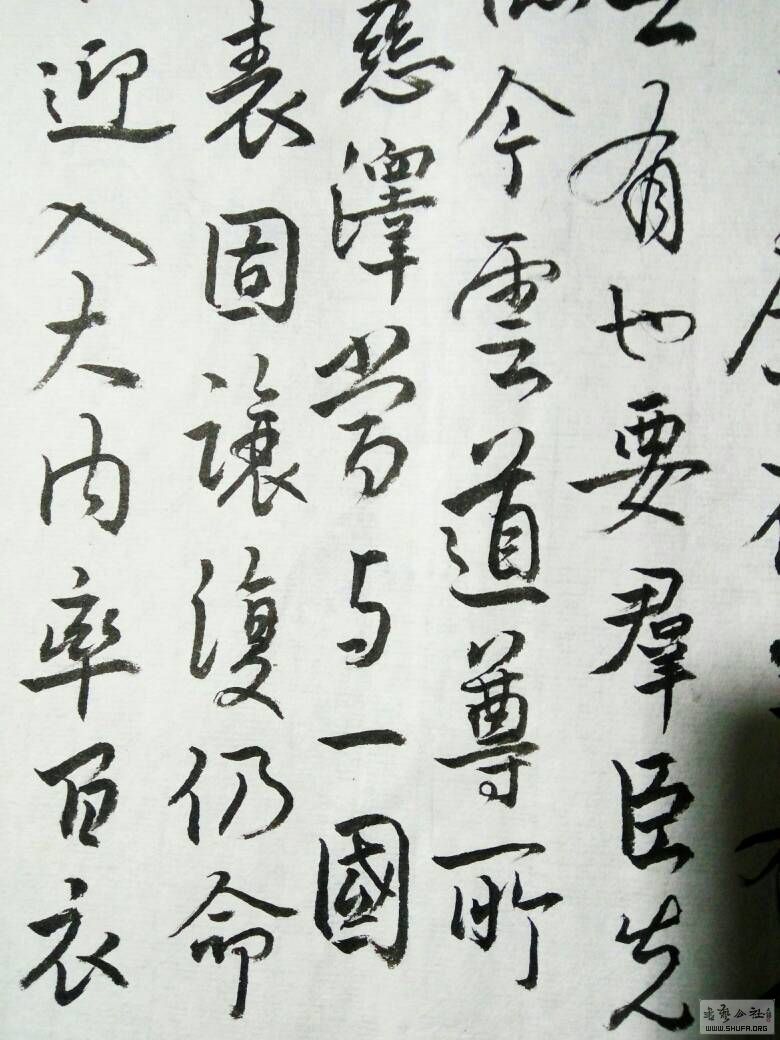 有也要羣臣先
今雲道尊所
澤當与一國
表固讓復仍命
迎入大内率百衣
书艺公社
WWW.SHUFA.ORG